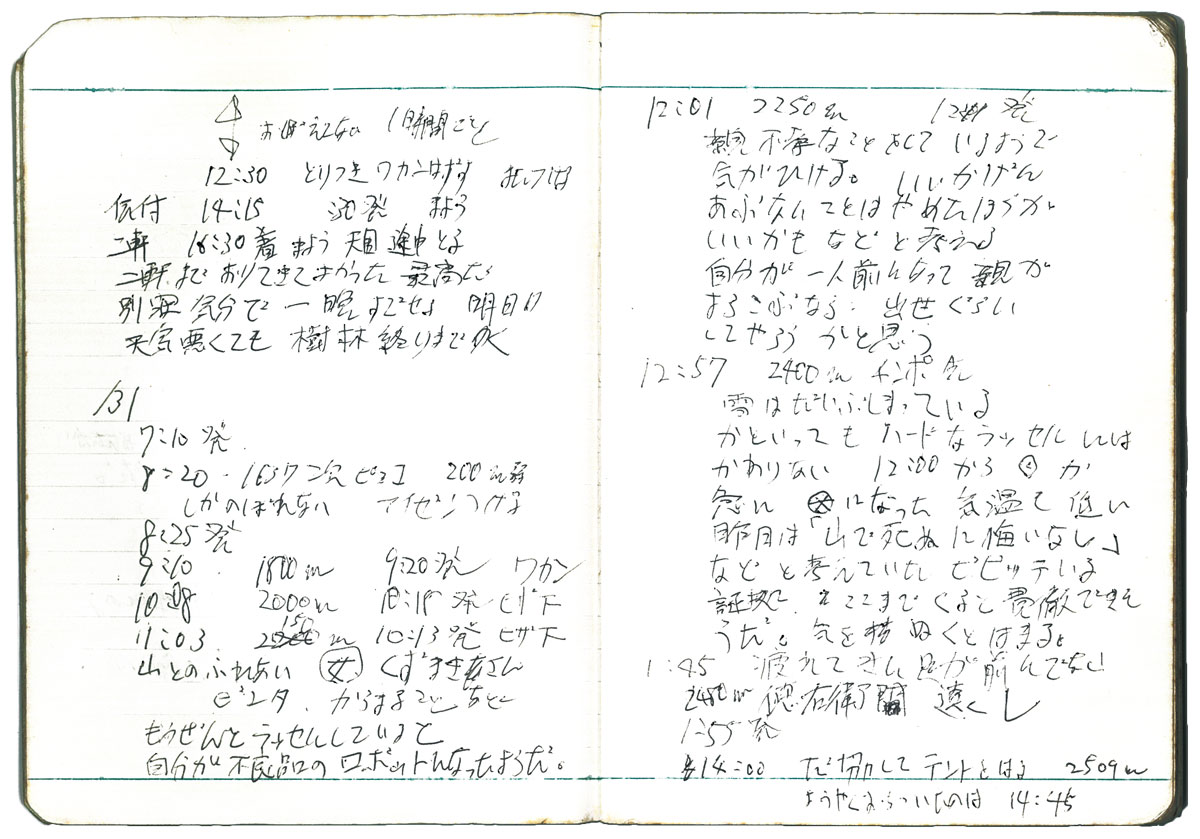 おぼえてない 1時間ごと
12:30 とりつき ワカンはずす
伝付 14:15 :30発 まよう
二軒 16:30着 まよう 途中 とる
二軒までおりてきてよかった 最高だ
別天 気分で 一晩すごせる 明日は
天気悪くても 樹林終りまで行く
1/31
7:10 発
8:20 - 1657 二次ピーク 200m弱
しかのぼれない アイゼンつける
8:25 発
9:10 1800m 9:20発 ワカン
10:08 2000m 10:18発 ヒザ下
11:03 2150m 10:13発 ヒザ下
山とのふれあい 女 くずまき さん
もうぜんとラッセルしていると
自分が不良品のロボットになったようだ。
12:01 2250m 発
親不孝なことをしているようで
気がひける。いいかげん
あぶないことはやめたほうが
いいかも などと考える
自分が一人前になって親が
よろこぶなら 出世ぐらい
してやろうかと思う
12:57 2400m
雪はだいぶしまっている
かといってもハードなラッセルには
かわりない 12:00から か
急に になった 気温も低い
昨日は「山で死ぬに悔いなし」
などと考えていた ビビッている
証拠だ ここまでくると貫徹できそ
うだ。気を ぬくとはまる。
1:45 疲れてきた 足が前にでない
2450m 徳右衛門 遠くし
1:55発
14:00 だ協してテントをはる 2509m
ようやくおちついたのは 14:45